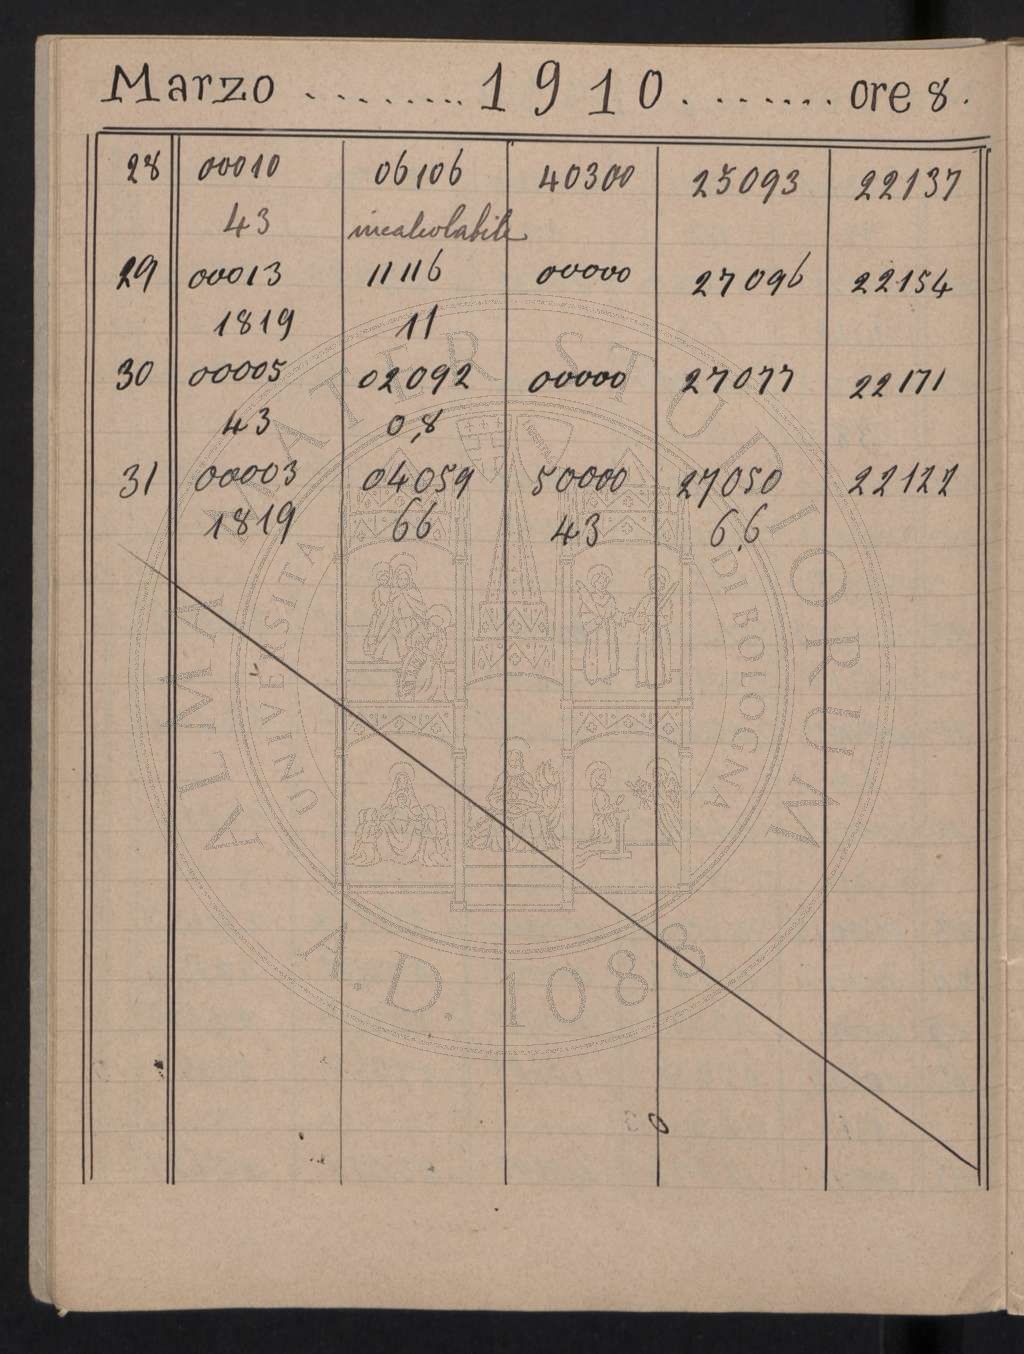 Marzo ......... 1910 ........ ore 8.
28 00010 06106 40300 25093 22137
43 incalcolabile
29 00013 11116 00000 27096 22154
1819 11
30 00005 02092 00000 27077 22171
43 0,8
31 00003 04059 50000 27050 22122
1819 66 43 6,6
ALMA MATER STUDIORUM
UNIVERSITA DI BOLOGNA
A.D. 1088